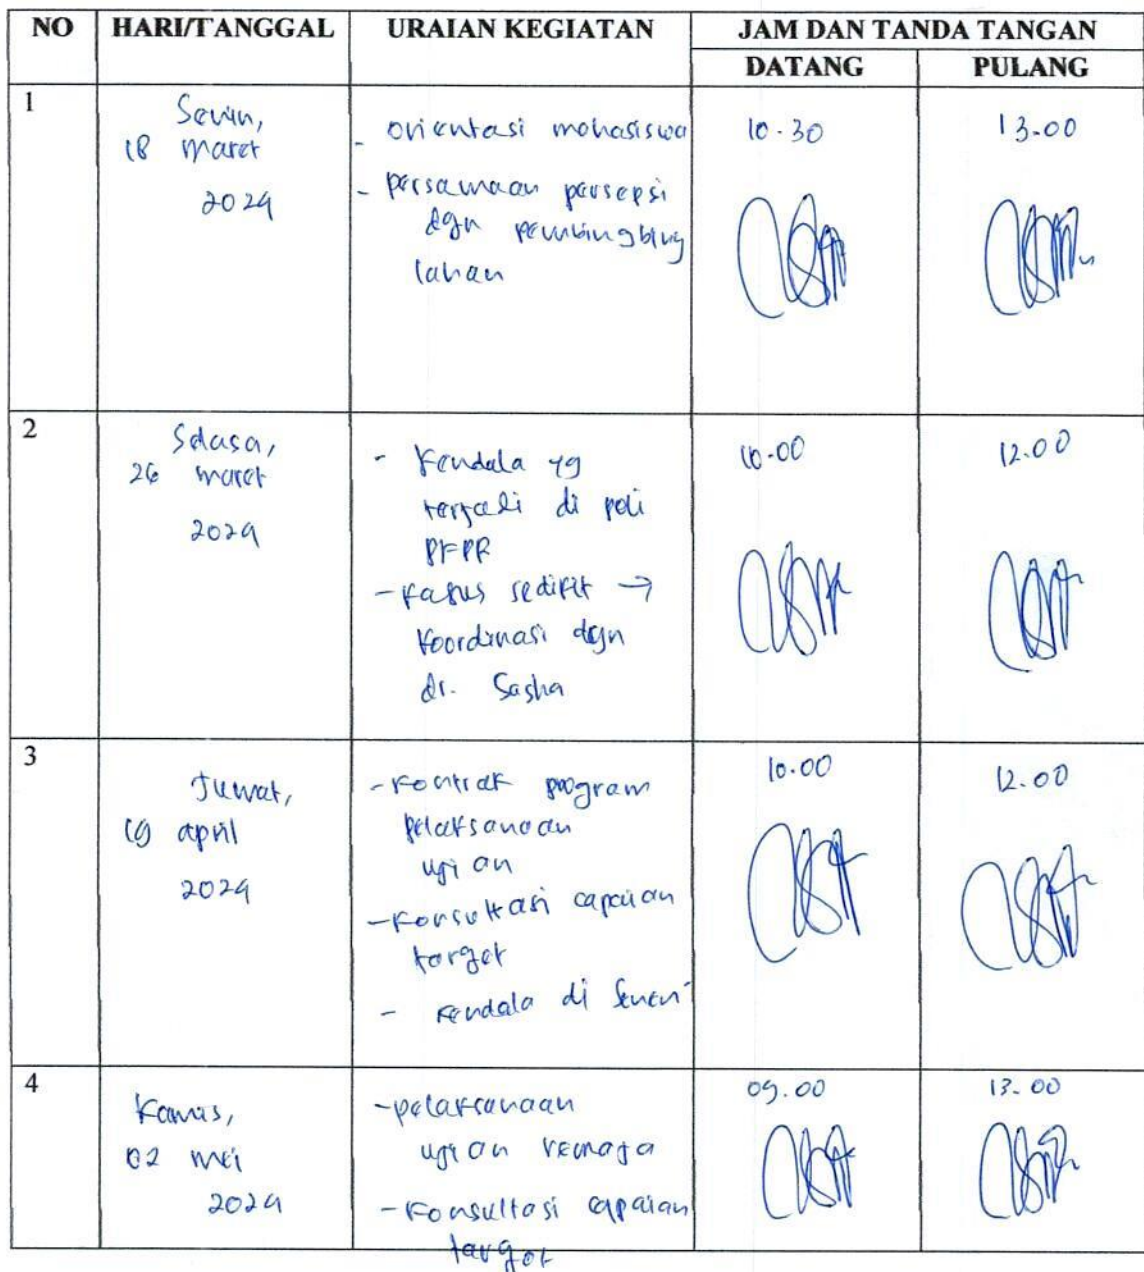 NO HARI/TANGGAL URAIAN KEGIATAN JAM DAN TANDA TANGAN
DATANG PULANG
1
Senin,
18 maret
2024
- orientasi mahasiswa
- persamaan persepsi
dgn pembingbing
lahan
10.30
13.00
2
Selasa,
26 maret
2024
- Kendala yg
terjadi di poli
- Kasus sedikit →
Koordinasi dgn
dr. Sasha
10.00
12.00
3
Jumat,
19 april
2024
- Kontrak program
pelaksanaan
ujian
- Konsultasi capaian
target
- Kendala di
10.00
12.00
4
Kamis,
02 mei
2024
- pelaksanaan
ujian remaja
- Konsultasi capaian
target
09.00
13.00